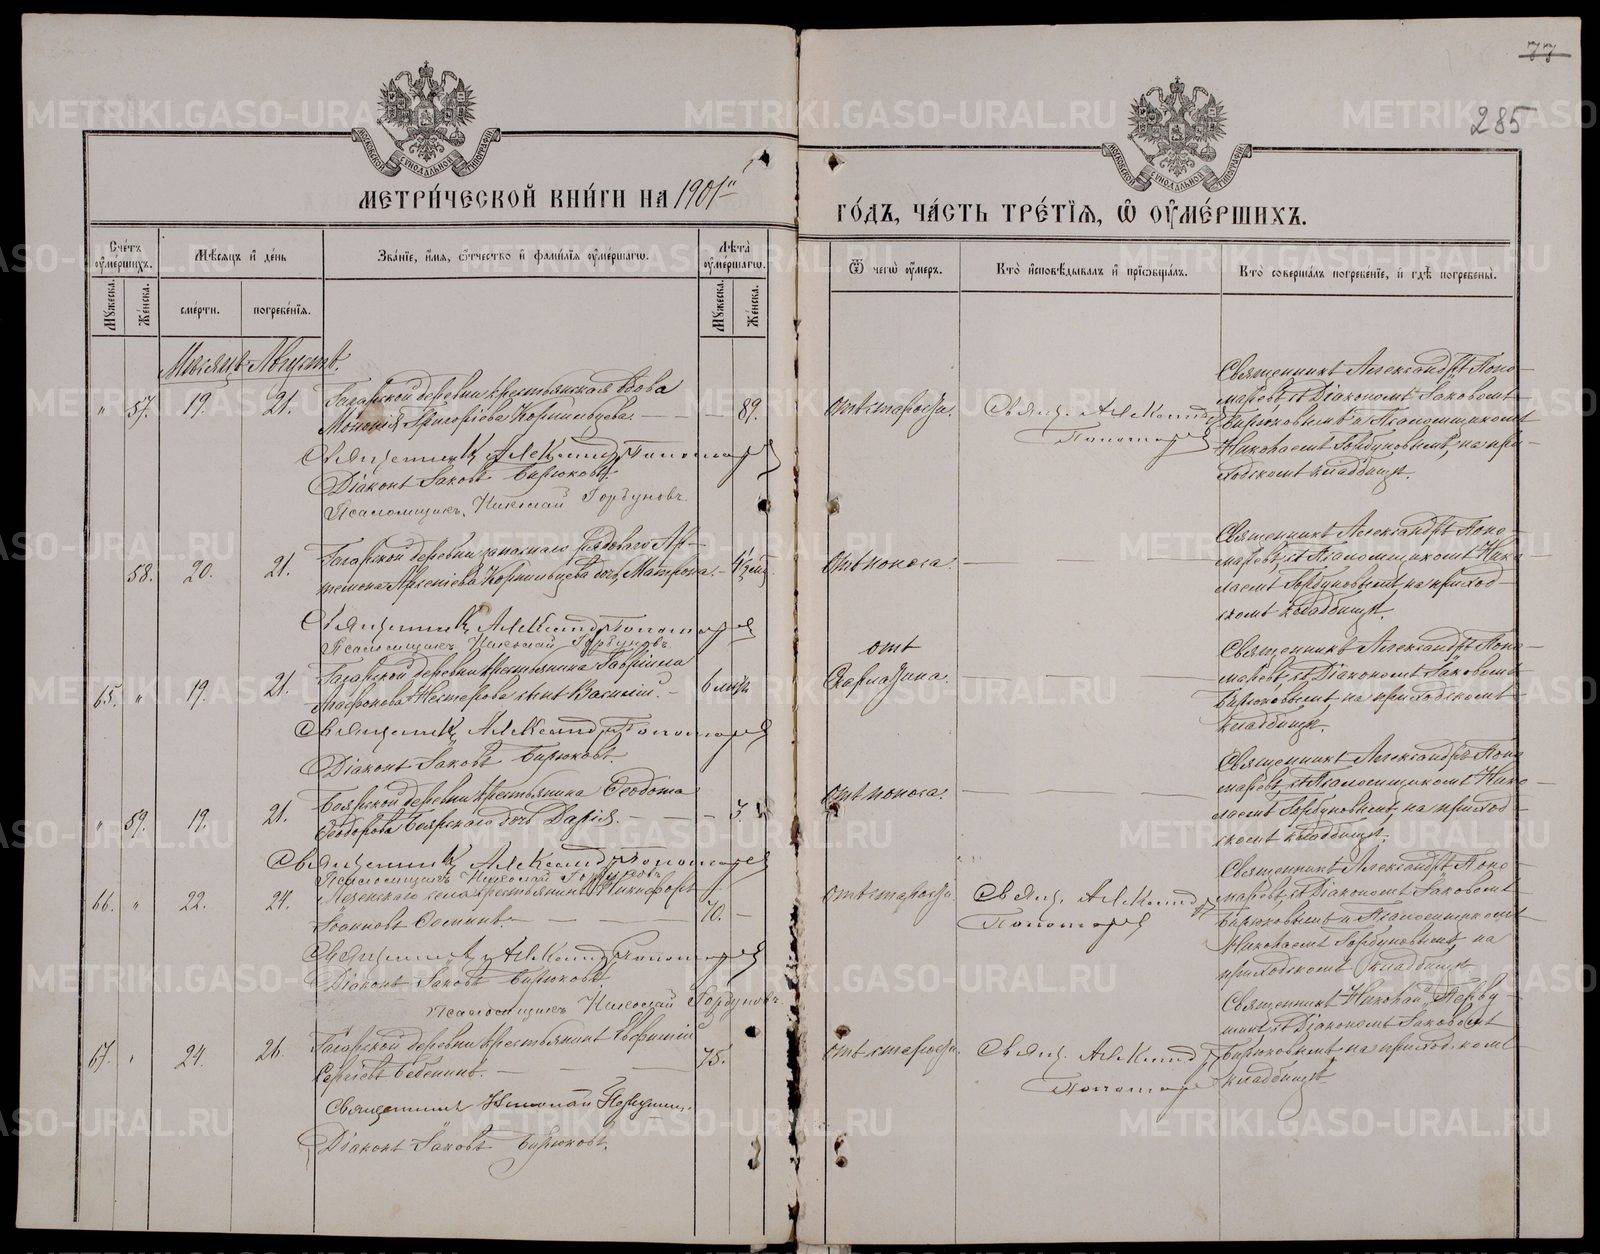 77
285
МЕТРИ́ЧЕСКОЙ КНИ́ГИ НА 1901й
ГО́ДЪ, ЧА́СТЬ ТРЕ́ТІЯ, Ѿ ОУМЕ́РШИХЪ.
Сче́тъ оуме́ршихъ.
Мꙋжеска.
Же́нска.
Мѣ́сяцъ и҆ де́нь
сме́рти.
погребе́нїя.
Зва́нїе, и҆́мя, ѻ҆́тчество и҆ фами́лїя оуме́ршагѡ.
Лѣта̀ оуме́ршагѡ.
Мꙋжеска.
Же́нска.
Ѿ чегѡ̀ оу́меръ.
Кто̀ и҆сповѣ́дывалъ и҆ прїѡбща́лъ.
Кто̀ соверша́лъ погребе́нїе, и҆ гдѣ̀ погребены̀.
Мѣсяцъ Августъ.
" 57. 19. 21.
Гагарской деревни крестьянская вдова
Григоріева Кормильцева. 89.
отъ старости.
Свящ. Александръ
Пономаревъ
Священникъ Александръ Поно-
маревъ съ Діакономъ Іаковомъ
Бирюковымъ и Псаломщикомъ
Николаемъ Горбуновымъ, на при-
ходскомъ кладбищѣ.
Священникъ Александръ Пономаревъ
Діаконъ Іаковъ Бирюковъ.
Псаломщикъ Николай Горбуновъ.
58. 20. 21.
Гагарской деревни запаснаго рядоваго Ар-
темона Арсеніева Кормильцева дочь Матрона.
отъ поноса.
Священникъ Александръ Поно-
маревъ съ Псаломщикомъ Нико-
лаемъ Горбуновымъ, на приход-
скомъ кладбищѣ.
Священникъ Александръ Пономаревъ
Псаломщикъ Николай Горбуновъ.
65. " 19. 21.
Гагарской деревни крестьянина Гавріила
Агафонова Нестерова сынъ Василій. 6 лѣтъ
отъ
Скарлатина.
Священникъ Александръ Поно-
маревъ съ Діакономъ Іаковомъ
Бирюковымъ на приходскомъ
кладбищѣ.
Священникъ Александръ Пономаревъ
Діаконъ Іаковъ Бирюковъ.
" 59. 19. 21.
Боярской деревни крестьянина Ѳеодота
Ѳеодорова Боярскаго дочь Дарія. 3.
отъ поноса.
Священникъ Александръ Поно-
маревъ съ Псаломщикомъ Нико-
лаемъ Горбуновымъ, на приход-
скомъ кладбищѣ.
Священникъ Александръ Пономаревъ
Псаломщикъ Николай Горбуновъ.
66. " 22. 24.
села крестьянинъ Никифоръ
Іоанновъ 70.
отъ старости.
Свящ. Александръ
Пономаревъ
Священникъ Александръ Поно-
маревъ съ Діакономъ Іаковомъ
Бирюковымъ и Псаломщикомъ
Николаемъ Горбуновымъ, на
приходскомъ кладбищѣ
Священникъ Александръ Пономаревъ
Діаконъ Іаковъ Бирюковъ.
Псаломщикъ Николай Горбуновъ.
67. " 24. 26.
Гагарской деревни крестьянинъ
Сергіевъ Бебенинъ. 75.
отъ старости.
Свящ. Александръ
Пономаревъ
Священникъ Николай Перву-
шинъ съ Діакономъ Іаковомъ
Бирюковымъ, на приходскомъ
кладбищѣ
Священникъ Николай Первушинъ.
Діаконъ Іаковъ Бирюковъ.
METRIKI.GASO-URAL.RU